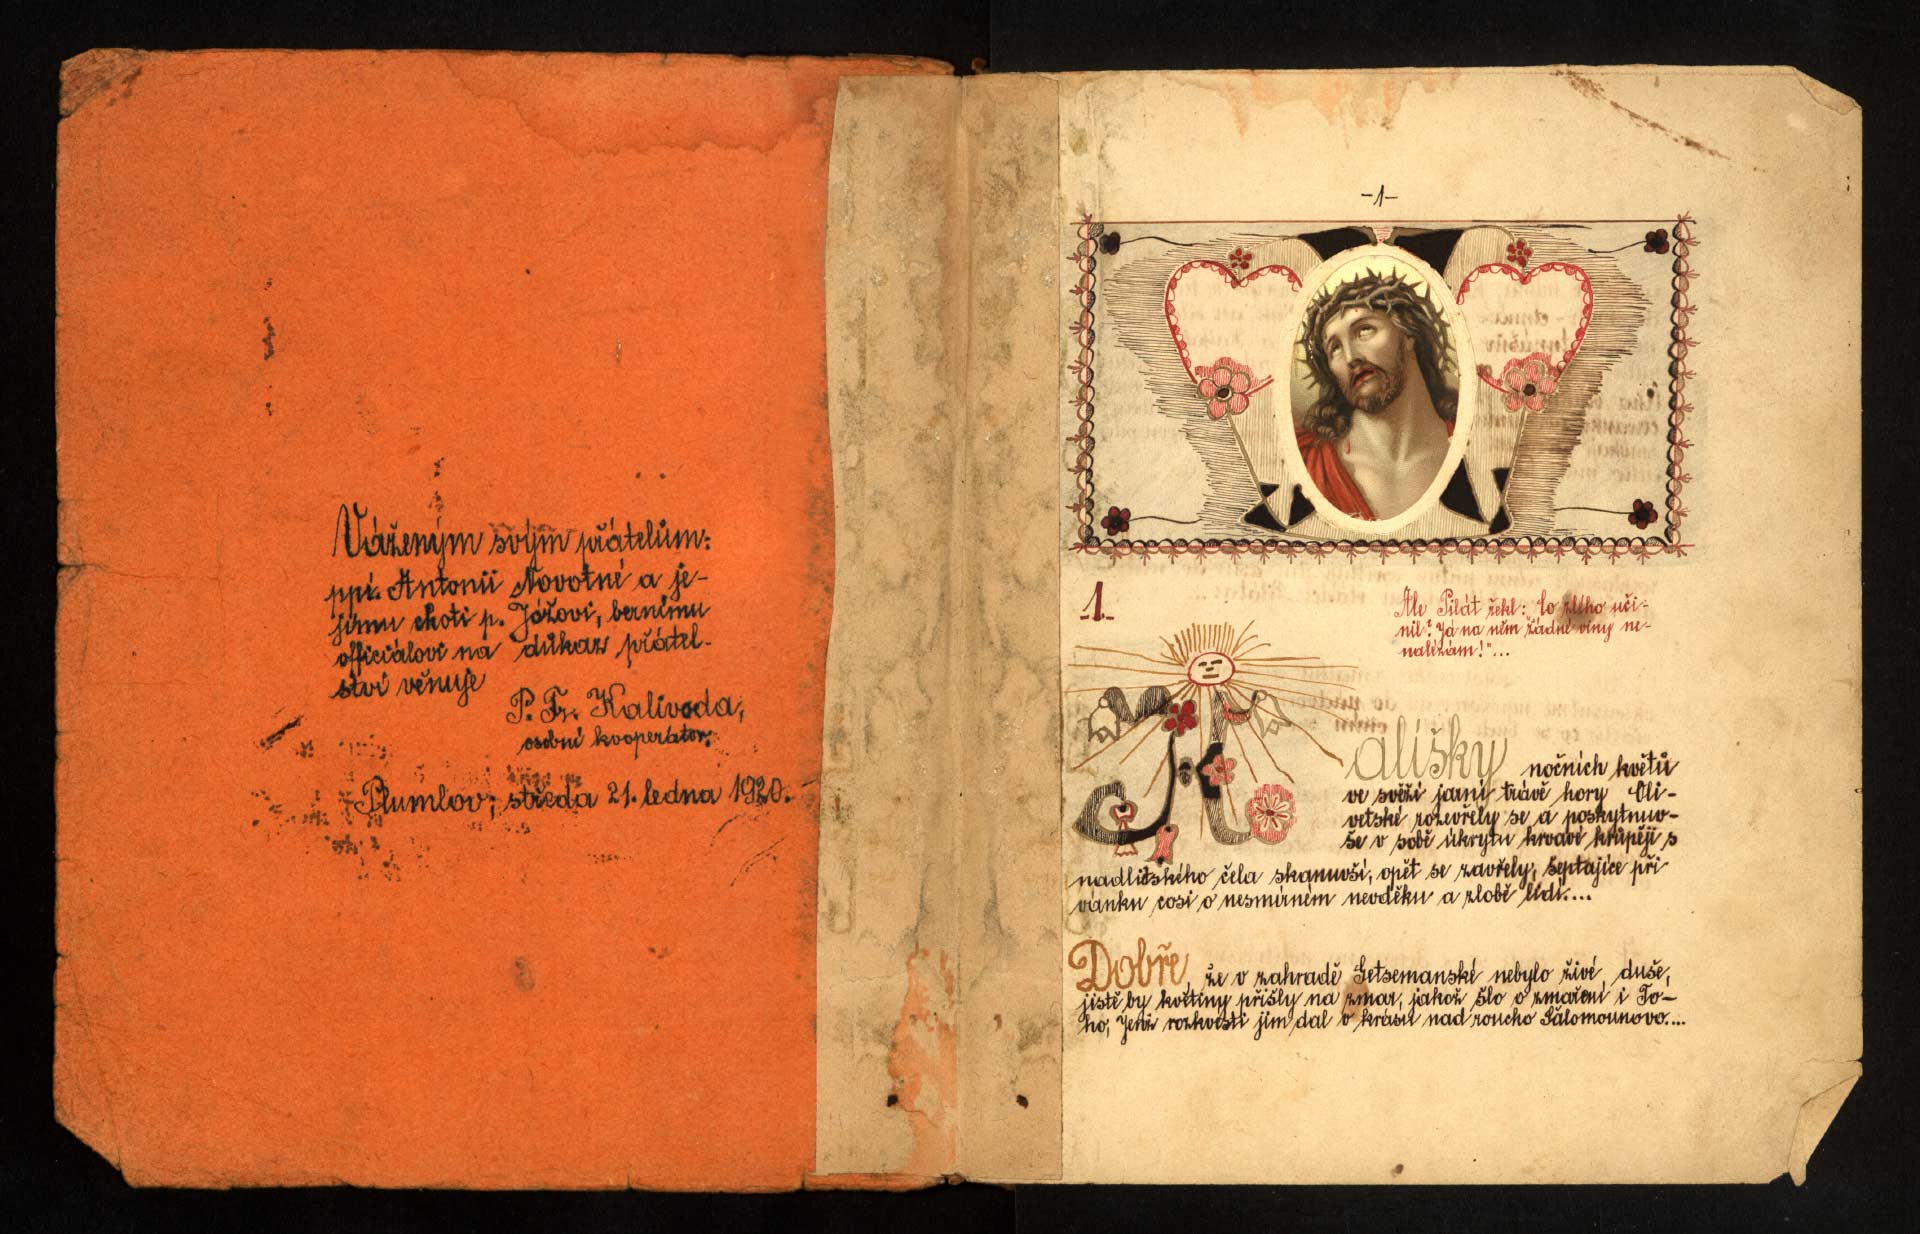 Váženým svým přátelům:
ppí. Antonii Novotné a je-
jímu choti p. Jóžovi, bernímu
officiálovi na důkaz přátel-
ství věnuje
P. Fr. Kalivoda,
osobní kooperátor,
Plumlov, středa 21. ledna 1920.
-1-
1.
Ale Pilát řekl: Co zlého uči-
nil? Já na něm žádné viny ne-
nalézám!"...
Kalíšky nočních květů
ve svěží jarní trávě hory Oli-
vetské rozevřely se a poskytnuv-
še v sobě úkrytu krvavé krůpěji s
nadlidského čela skanuvší, opět se zavřely, šeptajíce při
vánku cosi o nesmírném nevděku a zlobě lidí....
Dobře, že v zahradě Getsemanské nebylo živé duše,
jistě by květiny přišly na zmar, jakož šlo o zmaření i To-
ho, Jenž rozkvésti jim dal v krásu nad roucho Šalomounovo....